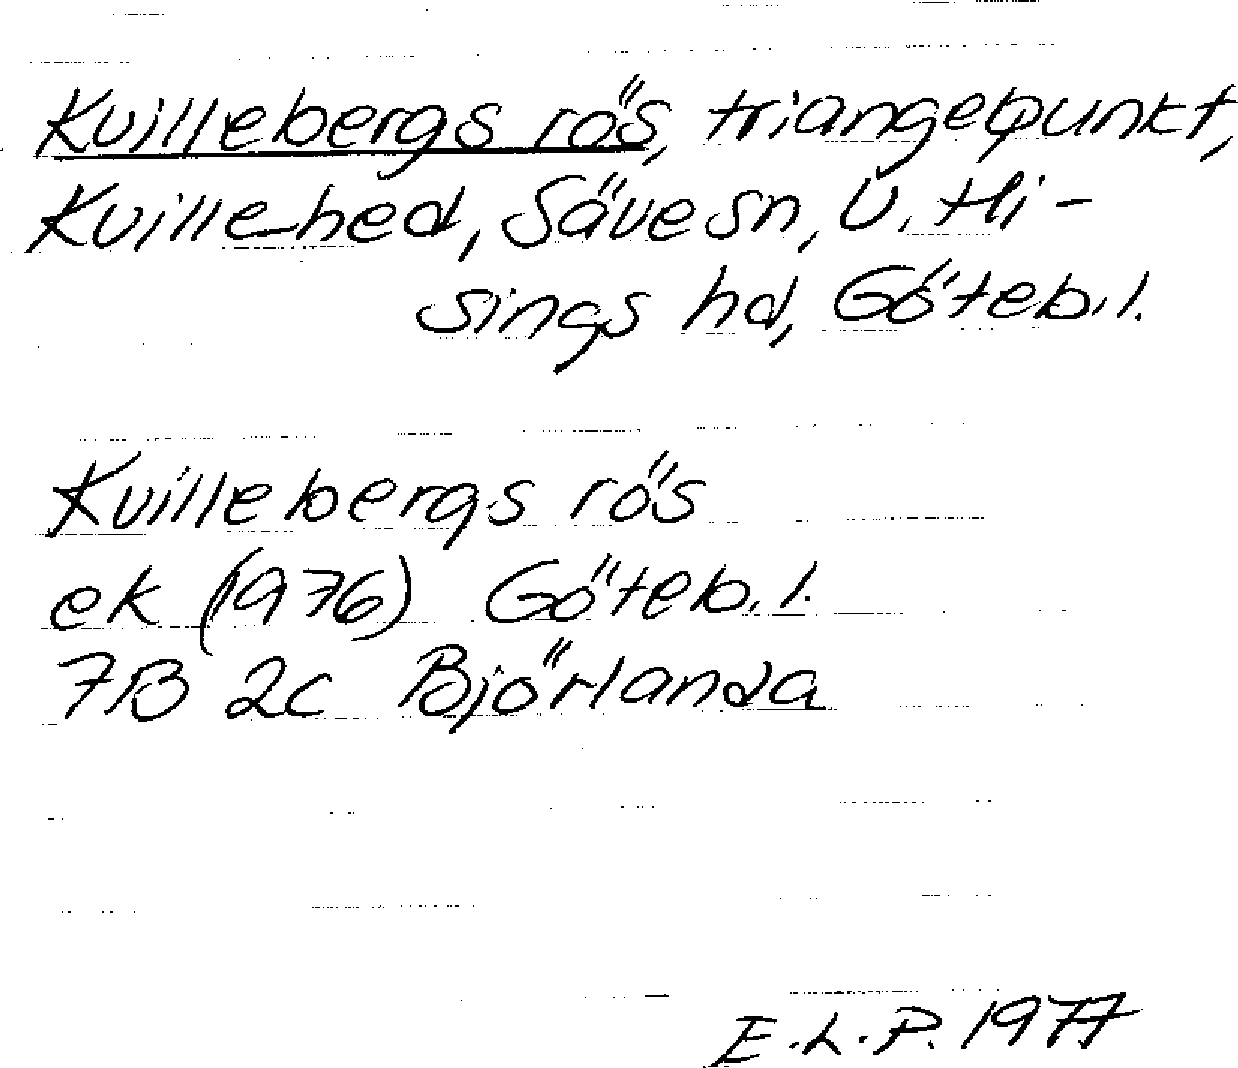 Kvillebergs rös, triangepunkt,
Kvillehed, Säve sn, V. Hi-
sings hd, Göteb. l.
Kvillebergs rös
ek (1976) Göteb. l.
7B 2c Björlanda
E.L.P. 1977